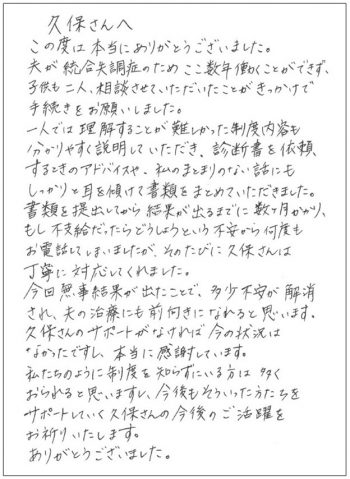 久保さんへ
この度は本当にありがとうございました。
夫が統合失調症のためここ数年働くことができず、
子供も二人、相談させていただいたことがきっかけで
手続きをお願いしました。
一人では理解することが難しかった制度内容も
分かりやすく説明していただき、診断書を依頼
するときのアドバイスや、私のまとまりのない話にも
しっかりと耳を傾けて書類をまとめていただきました。
書類を提出してから結果が出るまでに数ヶ月かかり、
もし不支給だったらどうしようという不安から何度も
お電話してしまいましたが、そのたびに久保さんは
丁寧に対応してくれました。
今回無事結果が出たことで、多少不安が解消
され、夫の治療にも前向きになれると思います。
久保さんのサポートがなければ今の状況は
なかったですし、本当に感謝しています。
私たちのように制度を知らずにいる方は多く
おられると思いますし、今後もそういった方たちを
サポートしていく久保さんの今後のご活躍を
お祈りいたします。
ありがとうございました。